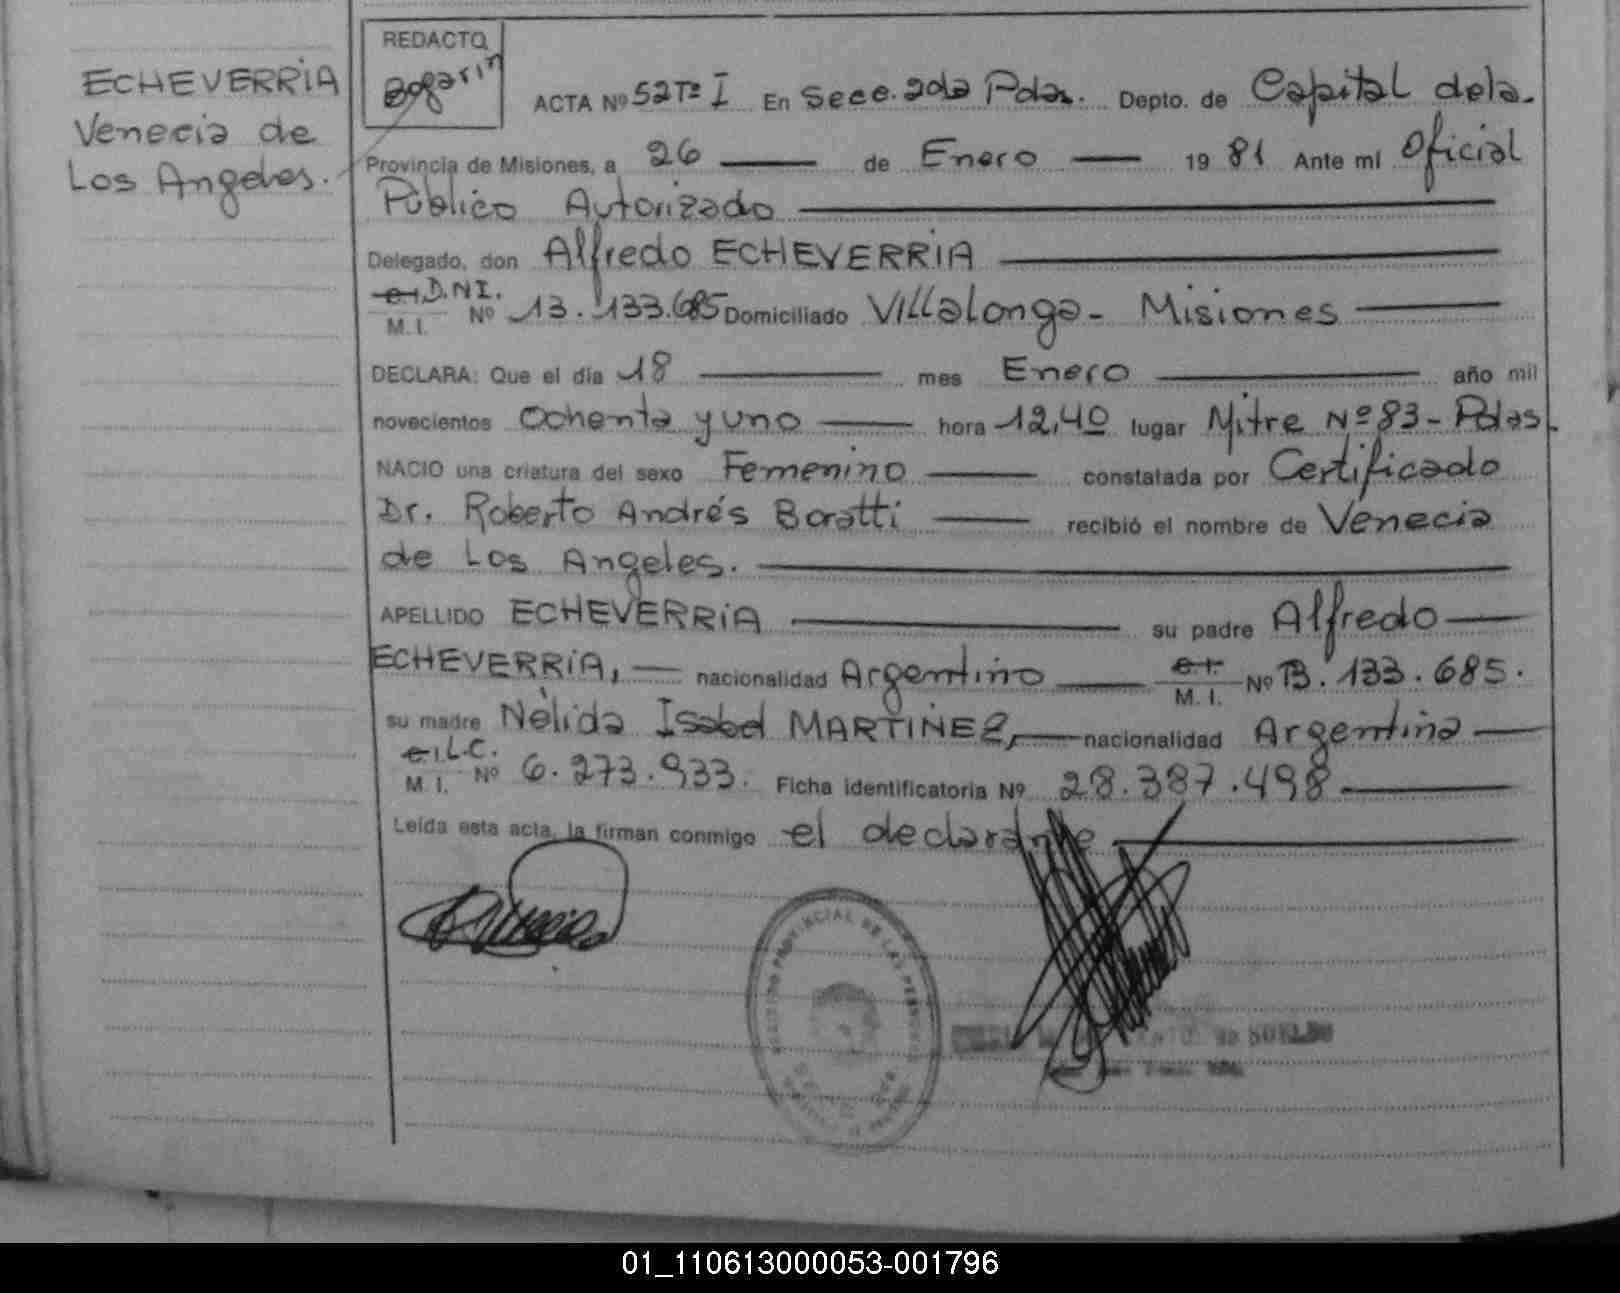 ECHEVERRIA
Venecia de
Los Angeles.
REDACTO
Bogarin
ACTA Nº 52 Tº I En Secc. 2da Pdas. Depto. de Capital dela.
Provincia de Misiones, a 26 de Enero 19 81 Ante mí Oficial
Público Autorizado
Delegado, don Alfredo ECHEVERRIA
C.I. D.N.I.
M.I. Nº 13.133.685 Domiciliado Villalonga - Misiones
DECLARA: Que el día 18 mes Enero año mil
novecientos Ochenta y uno hora 12,40 lugar Mitre Nº 83 - Pdas.
NACIO una criatura del sexo Femenino constatada por Certificado
Dr. Roberto Andrés Boratti recibió el nombre de Venecia
de Los Angeles.
APELLIDO ECHEVERRIA su padre Alfredo
ECHEVERRIA, nacionalidad Argentino C.I. M.I. Nº 13.133.685.
su madre Nélida Isabel MARTINEZ, nacionalidad Argentina
C.I. L.C.
M.I. Nº 6.273.933. Ficha identificatoria Nº 28.387.498
Leída esta acta, la firman conmigo el declarante
01_110613000053-001796